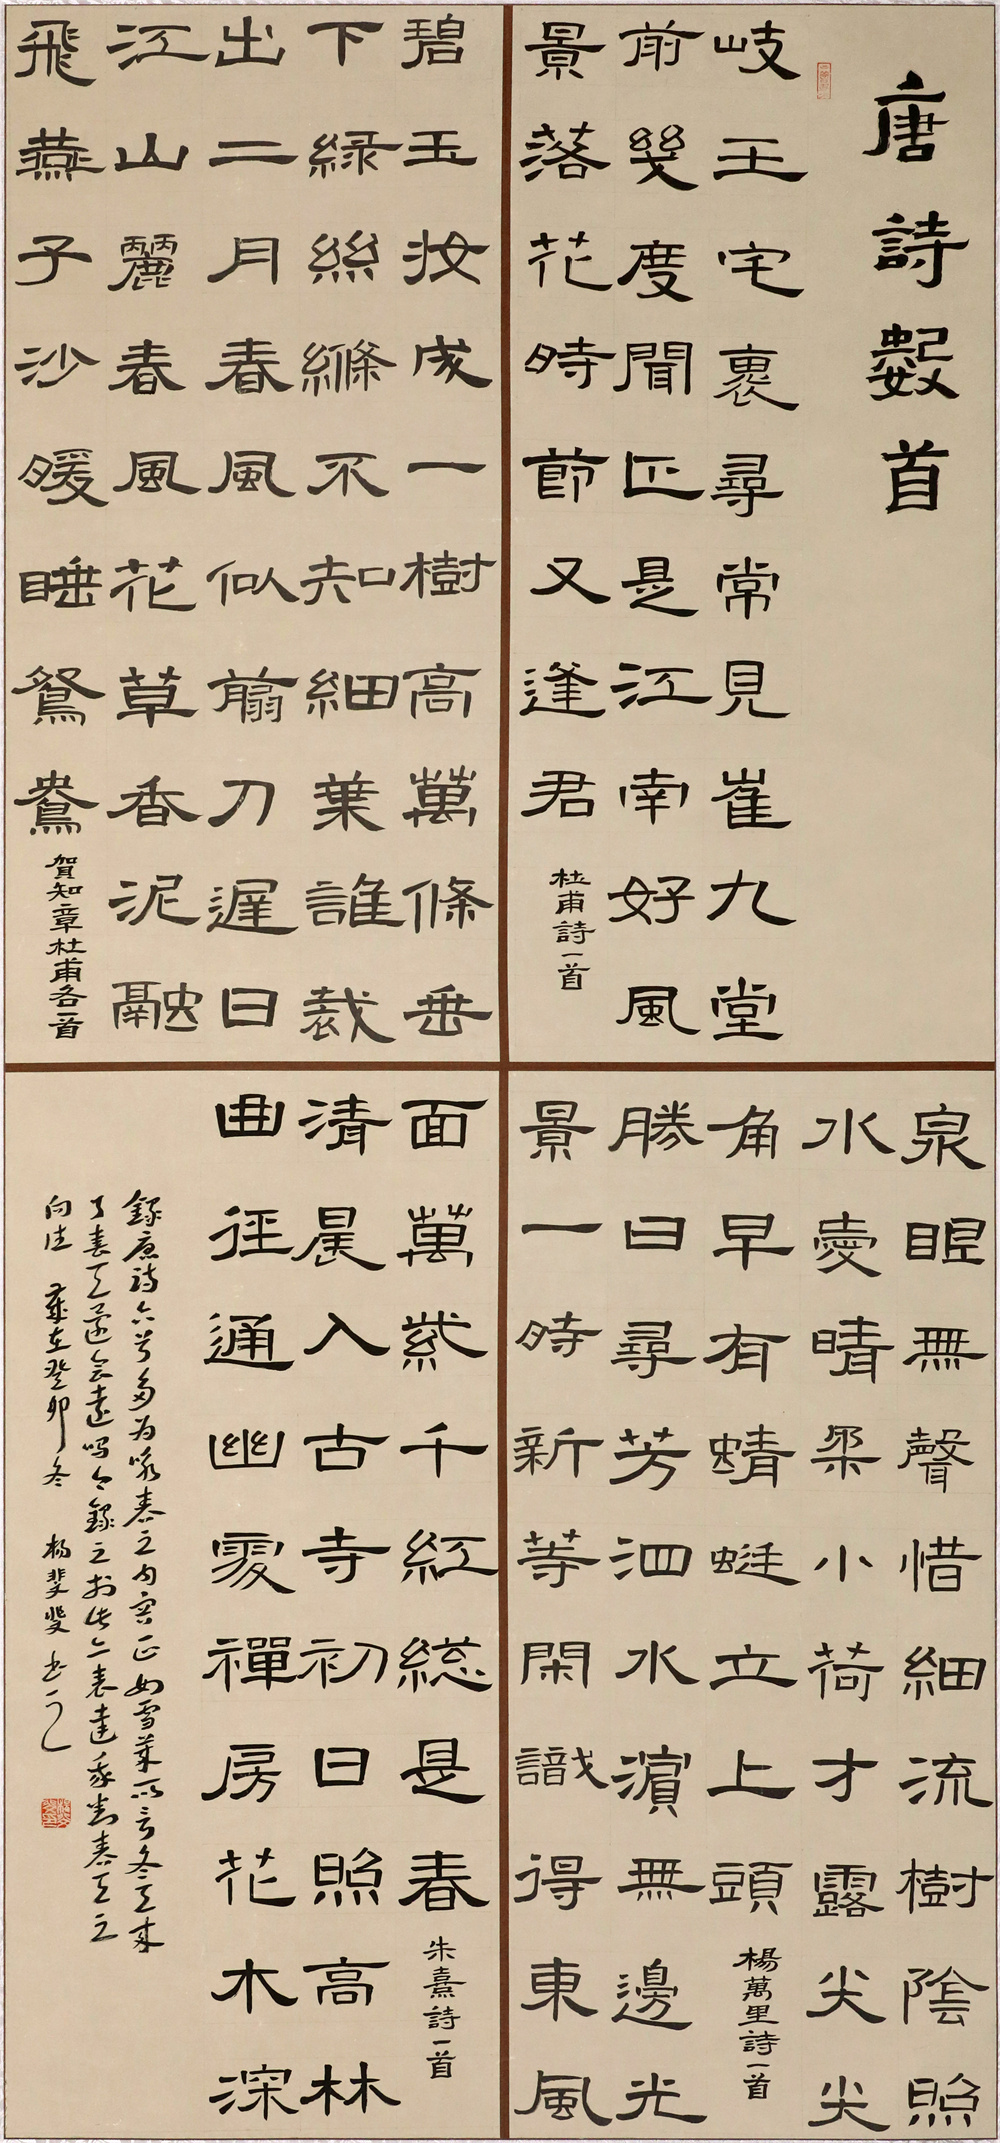 唐詩數首
岐王宅裏尋常見崔九堂
前幾度聞正是江南好風
景落花時節又逢君
杜甫詩一首
碧玉妝成一樹高萬條垂
下緑絲縧不知細葉誰裁
出二月春風似翦刀遲日
江山麗春風花草香泥融
飛燕子沙暖睡鴛鴦
賀知章杜甫各一首
泉眼無聲惜細流樹陰照
水愛晴柔小荷才露尖尖
角早有蜻蜓立上頭
楊萬里詩一首
勝日尋芳泗水濱無邊光
景一時新等閑識得東風
面萬紫千紅総是春
朱熹詩一首
清晨入古寺初日照高林
曲徑通幽處禪房花木深
錄唐詩六首多為咏春之内容正如雪萊所言冬天來
了春天還會遠嗎今錄之於此亦表達我對春天之
向往 歲在癸卯冬 楊斐斐書之